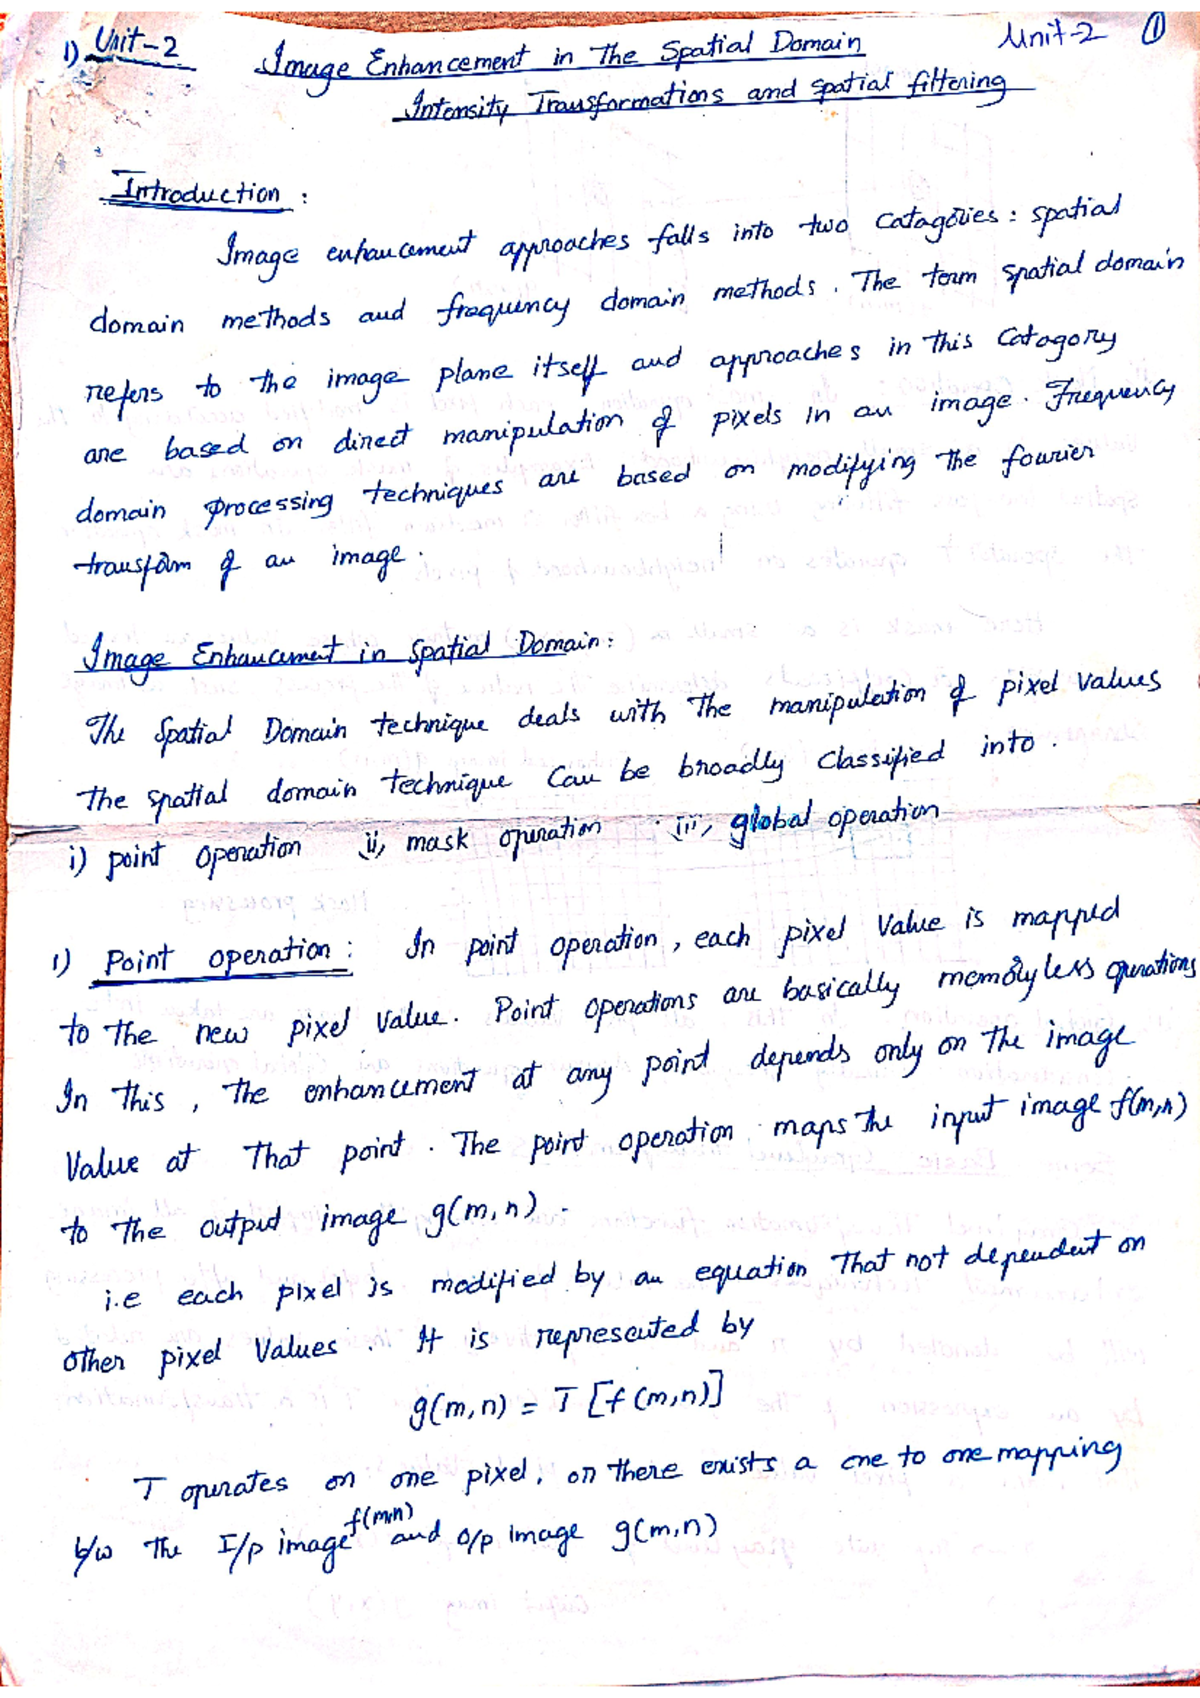 1) Unit-2
Image Enhancement in The Spatial Domain
Unit-2 ①
Intensity Transformations and spatial filtering
Introduction :
Image enhancement approaches falls into two Catagories : spatial
domain methods and frequency domain methods . The term spatial domain
refers to the image plane itself and approaches in this Catagory
are based on direct manipulation of pixels in an image . Frequency
domain processing techniques are based on modifying the fourier
transform of an image .
Image Enhancement in Spatial Domain:
The Spatial Domain technique deals with the manipulation of pixel values
The spatial domain technique can be broadly classified into .
i) point operation ii, mask operation iii, global operation
1) Point operation : In point operation , each pixel Value is mapped
to the new pixel value. Point operations are basically memoryless operations
In this , the enhancement at any point depends only on the image
Value at that point . The point operation maps the input image f(m,n)
to the output image g(m,n) .
i.e each pixel is modified by an equation that not dependent on
other pixel Values . It is represented by
g(m,n) = T [f (m,n)]
T operates on one pixel, or there exists a one to one mapping
b/w the I/p image f(m,n) and o/p image g(m,n)